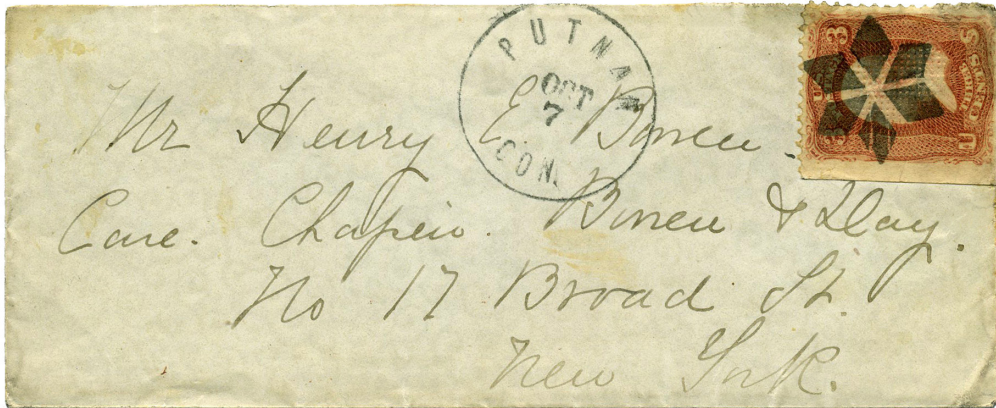 PUTNAM
OCT
7
CON.
3 3
U
Mr Henry E. Bowen
Care. Chapin. Bowen & Day.
No 17 Broad St.
New York.